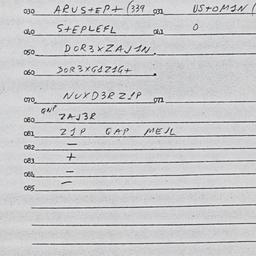 030 ARUS+EP+ (339 031 US+OM1N (
040 S+EPLEFL 041 O
050 DOR3XZAJ1N.
060 3OR3XG1Z1G+ .
070 NUYD3RZ1P 071
QNP
080 ZAJ3R
081 Z1P GAP MEJL
082 —
083 +
084 —
085 —